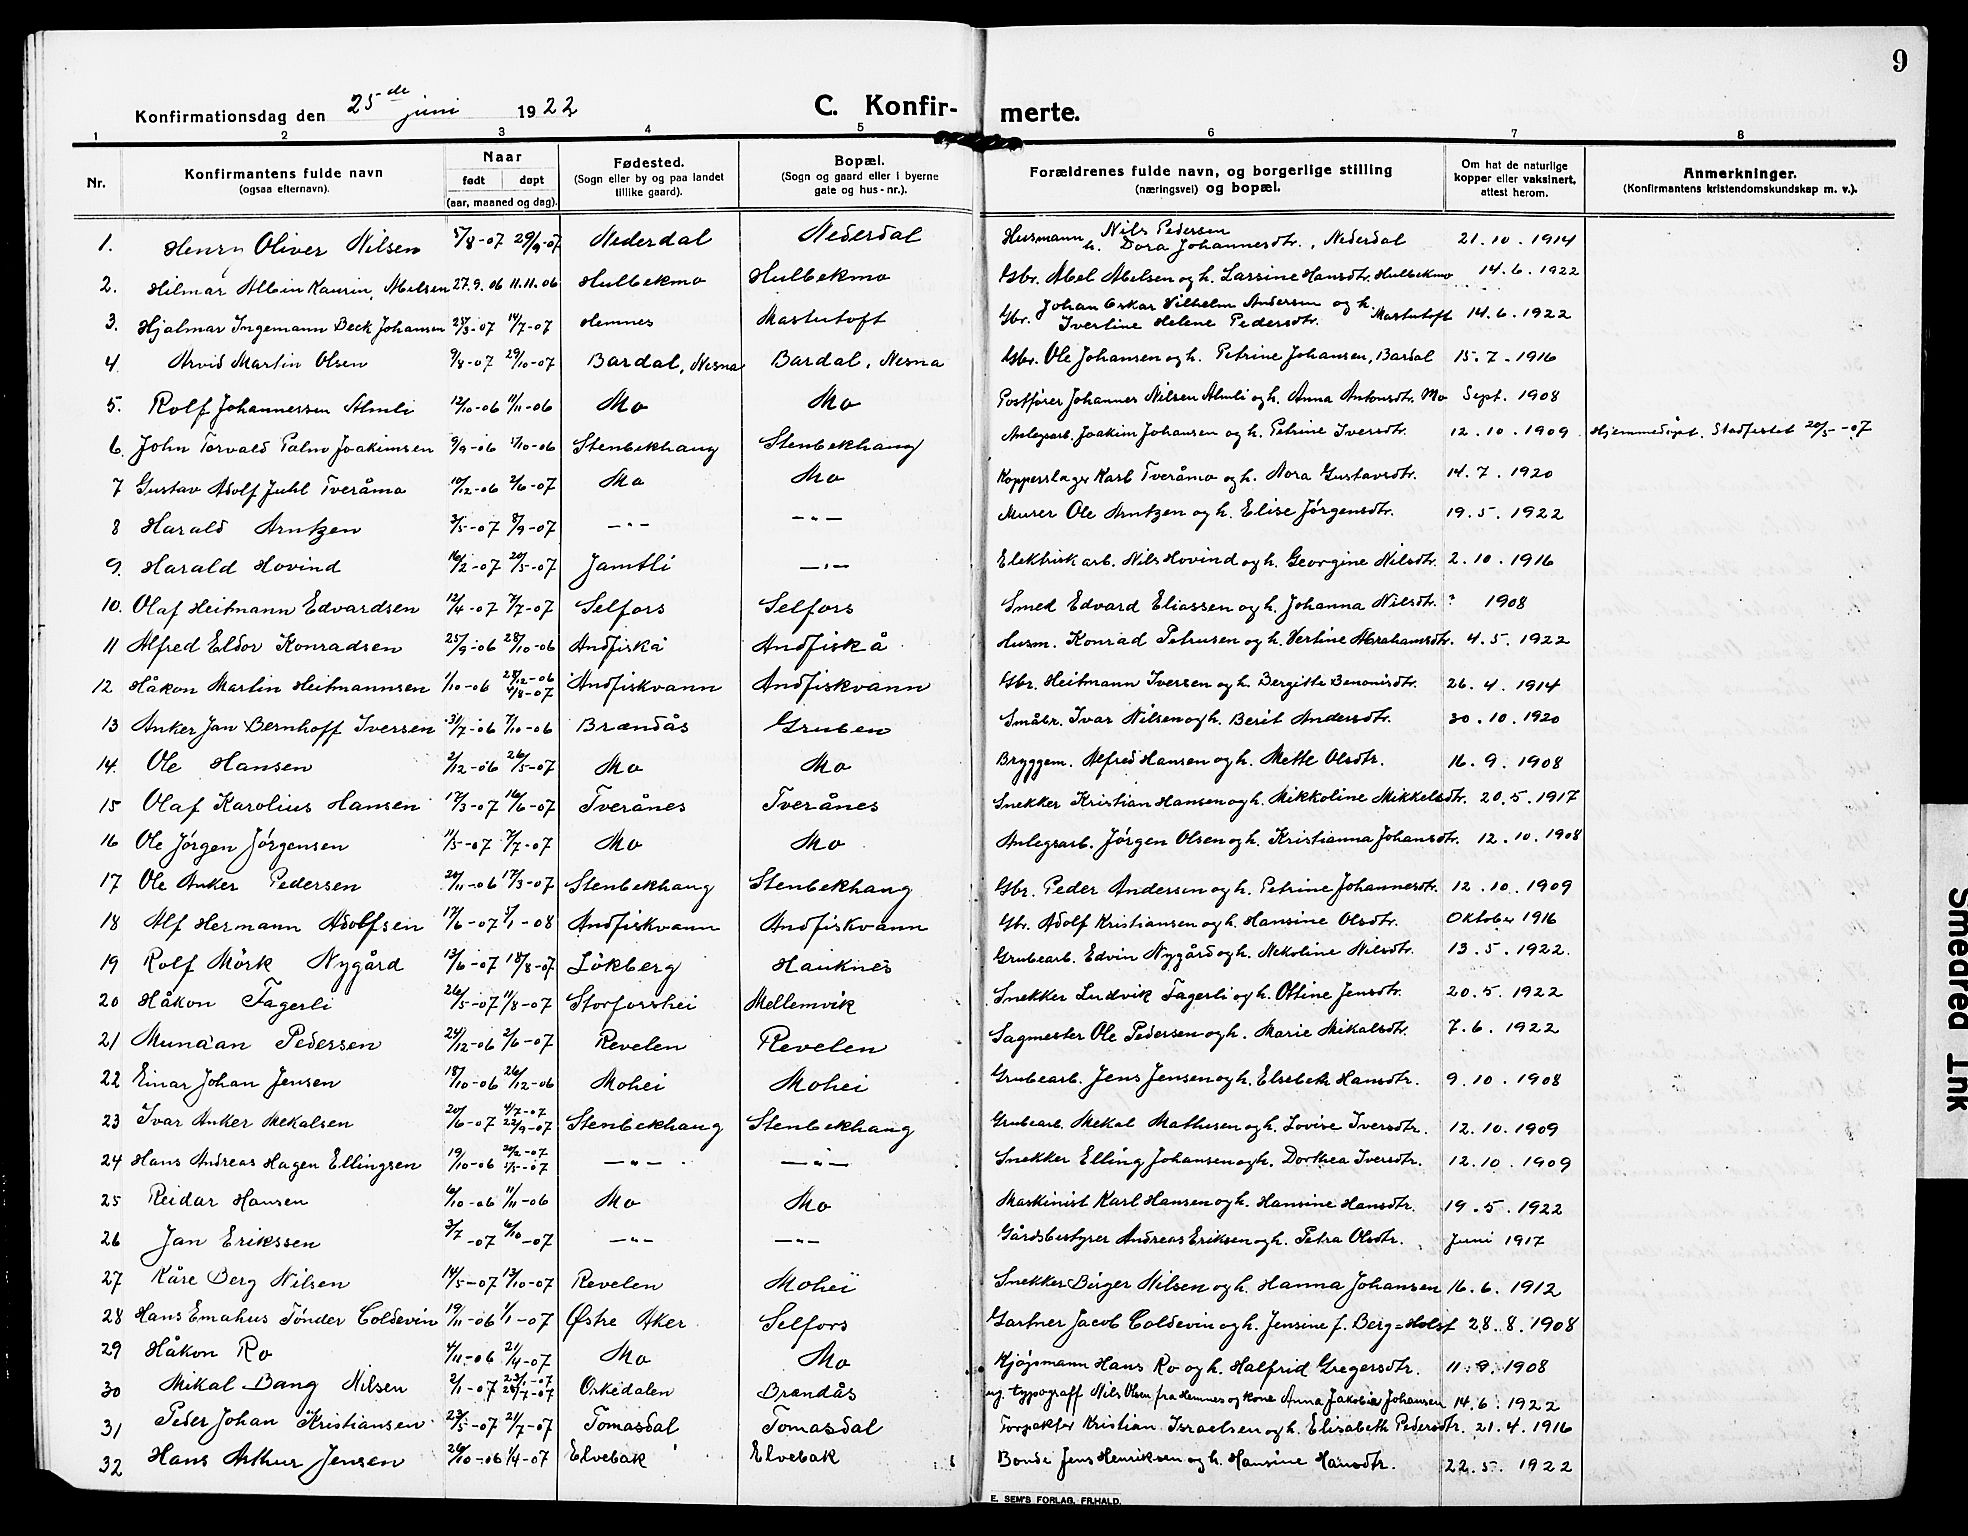 9
Konfirmationsdag den 25de juni 1922 C. Konfirmerte.
1 2 3 4 5 6 7 8
Nr. Konfirmantens fulde navn (ogsaa efternavn). Naar født døpt (aar, maaned og dag). Fødested. (Sogn eller by og paa landet tillike gaard). Bopæl. (Sogn og gaard eller i byerne gate og hus-nr.). Forældrenes fulde navn, og borgerlige stilling (næringsvei) og bopæl. Om hat de naturlige kopper eller vaksinert, attest herom. Anmerkninger. (Konfirmantens kristendomskundskap m. v.).
1. Henry Oliver Nilsen 5/8-07 29/9-07 Nederdal Nederdal Husmann Nils Pedersen h. Dora Johannesdtr., Nederdal 21.10.1914
2. Hilmar Albin Kaurin, Abelsen 27.9.06 11.11.06 Hulbekmo Hulbekmo Gbr. Abel Abelsen og h. Lassine Hansdtr. Hulbekmo 14.6.1922
3. Hjalmar Ingemann Beck Johansen 25/3-07 14/7-07 Hemnes Mastutoft Gbr. Johan Oskar Vilhelm Andersen og h. Ivertine Helene Pedersdtr. Mastutoft 14.6.1922
4. Arvid Martin Olsen 9/8-07 29/10-07 Bardal, Nesna Bardal, Nesna Gbr. Ole Johansen og h. Petrine Johansen, Bardal 15.7.1916
5. Rolf Johannessen Almli 12/10-06 11/11-06 Mo Mo Postfører Johannes Nilsen Almli og h. Anna Antonsdtr. Mo Sept. 1908
6. John Torvald Palm Joakimsen 9/9-06 -06 Stenbekhaug Stenbekhaug Anlegsarb. Joakim Johansen og h. Petrine Iversdtr. 12.10.1909 Hjemmedöpt. Stadfestet 20/5-07
7 Gustav Adolf Juhl Tveråmo 10/12-06 2/6-07 Mo Mo Kopperslager Karl Tveråmo og h. Nora Gustavsdtr. 14.7.1920
8 Harald Arntzen 3/5-07 8/9-07 -"- -"- Murer Ole Arntzen og h. Elise Jörgensdtr. 19.5.1922
9. Harald Hovind 16/2-07 20/5-07 Jamtli -"- Elektrisk arb. Nils Hovind og h. Georgine Nilsdtr. 2.10.1916
10. Olaf Heitmann Edvardsen 12/4-07 7/7-07 Selfors Selfors Smed Edvard Eliassen og h. Johanna Nilsdtr. ? 1908
11 Alfred Eldor Konradsen 25/9-06 28/10-06 Andfiskå Andfiskå Husm. Konrad Petrusen og h. Vertine Abrahamsdtr. 4.5.1922
12 Håkon Martin Heitmannsen 1/10-06 28/12-06 4/8-07 Andfiskvann Andfiskvann Gbr. Heitmann Iversen og h. Bergitte Benonisdtr. 26.4.1914
13 Anker Jan Bernhoff Iversen 31/7-06 7/10-06 Brændås Gruben Småbr. Ivar Nilsen og h. Berit Andersdtr. 30.10.1920
14. Ole Hansen 2/12-06 26/5-07 Mo Mo Bryggem. Alfred Hansen og h. Mette Olsdtr. 16.9.1908
15 Olaf Karolius Hansen 17/3-07 16/6-07 Tverånes Tverånes Snekker Kristian Hansen og h. Mikkoline Mikkelsdtr. 20.5.1917
16 Ole Jörgen Jörgensen 11/5-07 7/7-07 Mo Mo Anlegsarb. Jörgen Olsen og h. Kristianna Johansdtr. 12.10.1908
17 Ole Anker Pedersen 20/11-06 17/3-07 Stenbekhaug Stenbekhaug Gbr. Peder Andersen og h. Petrine Johannesdtr. 12.10.1909
18 Alf Hermann Adolfsen 17/6-07 5/1-08 Andfiskvann Andfiskvann Gbr. Adolf Kristiansen og h. Hansine Olsdtr. Oktober 1916
19 Rolf Mörk Nygård 13/6-07 18/8-07 Lökberg Hauknes Grubearb. Edvin Nygård og h. Nekoline Nilsdtr. 13.5.1922.
20 Håkon Fagerli 26/5-07 11/8-07 Storforshei Mellemvik Snekker Ludvik Fagerli og h. Ottine Jensdtr. 20.5.1922
21 Munaan Pedersen 24/12-06 2/6-07 Revelen Revelen Sagmester Ole Pedersen og h. Marie Mikalsdtr. 7.6.1922
22 Einar Johan Jensen 18/10-06 26/12-06 Mohei Mohei Grubearb. Jens Jensen og h. Elsebeth Hansdtr. 9.10.1908
23 Ivar Anker Mekalsen 20/6-07 4/7-07 22/9-07 Stenbekhaug Stenbekhaug Grubearb. Mekal Mathisen og h. Lovise Iversdtr. 12.10.1909
24 Hans Andreas Hagen Ellingsen 19/10-06 -07 -07 -"- -"- Snekker Elling Johansen og h. Dorthea Iversdtr. 12.10.1909
25 Reidar Hansen 6/10-06 11/11-06 Mo Mo Maskinist Karl Hansen og h. Hansine Hansdtr. 19.5.1922
26 Jan Erikssen 3/7-07 6/10-07 -"- -"- Gårdsbestyrer Andreas Eriksen og h. Petra Olsdtr. Juni 1917
27 Kåre Berg Nilsen 14/5-07 13/10-07 Revelen Mohei Snekker Birger Nilsen og h. Hanna Johansen 16.6.1912
28 Hans Emahus Tönder Coldevin 19/11-06 1/1-07 Østre Aker Selfors Gartner Jacob Coldevin og h. Jensine f. Berg=Holst 28.8.1908
29 Håkon Ro 4/11-06 21/4-07 Mo Mo Kjøpmann Hans Ro og h. Halfrid Gregersdtr. 11.9.1908
30 Mikal Bang Nilsen 2/1-07 -07 28/7-07 Orkedalen Brændås ug. typograff Nils Olsen fra Hemnes og kone Anna Jakobia Johansen 14.6.1922
31 Peder Johan Kristiansen 23/5-07 21/7-07 Tomasdal Tomasdal Forpakter Kristian Israelsen og h. Elisabeth Pedersdtr. 21.4.1916
32 Hans Arthur Jensen 26/10-06 1/4-07 Elvebak Elvebak Bonde Jens Henriksen og h. Hansine Hansdtr. 22.5.1922
E. SEM'S FORLAG, FR.HALD.
Smeared Ink